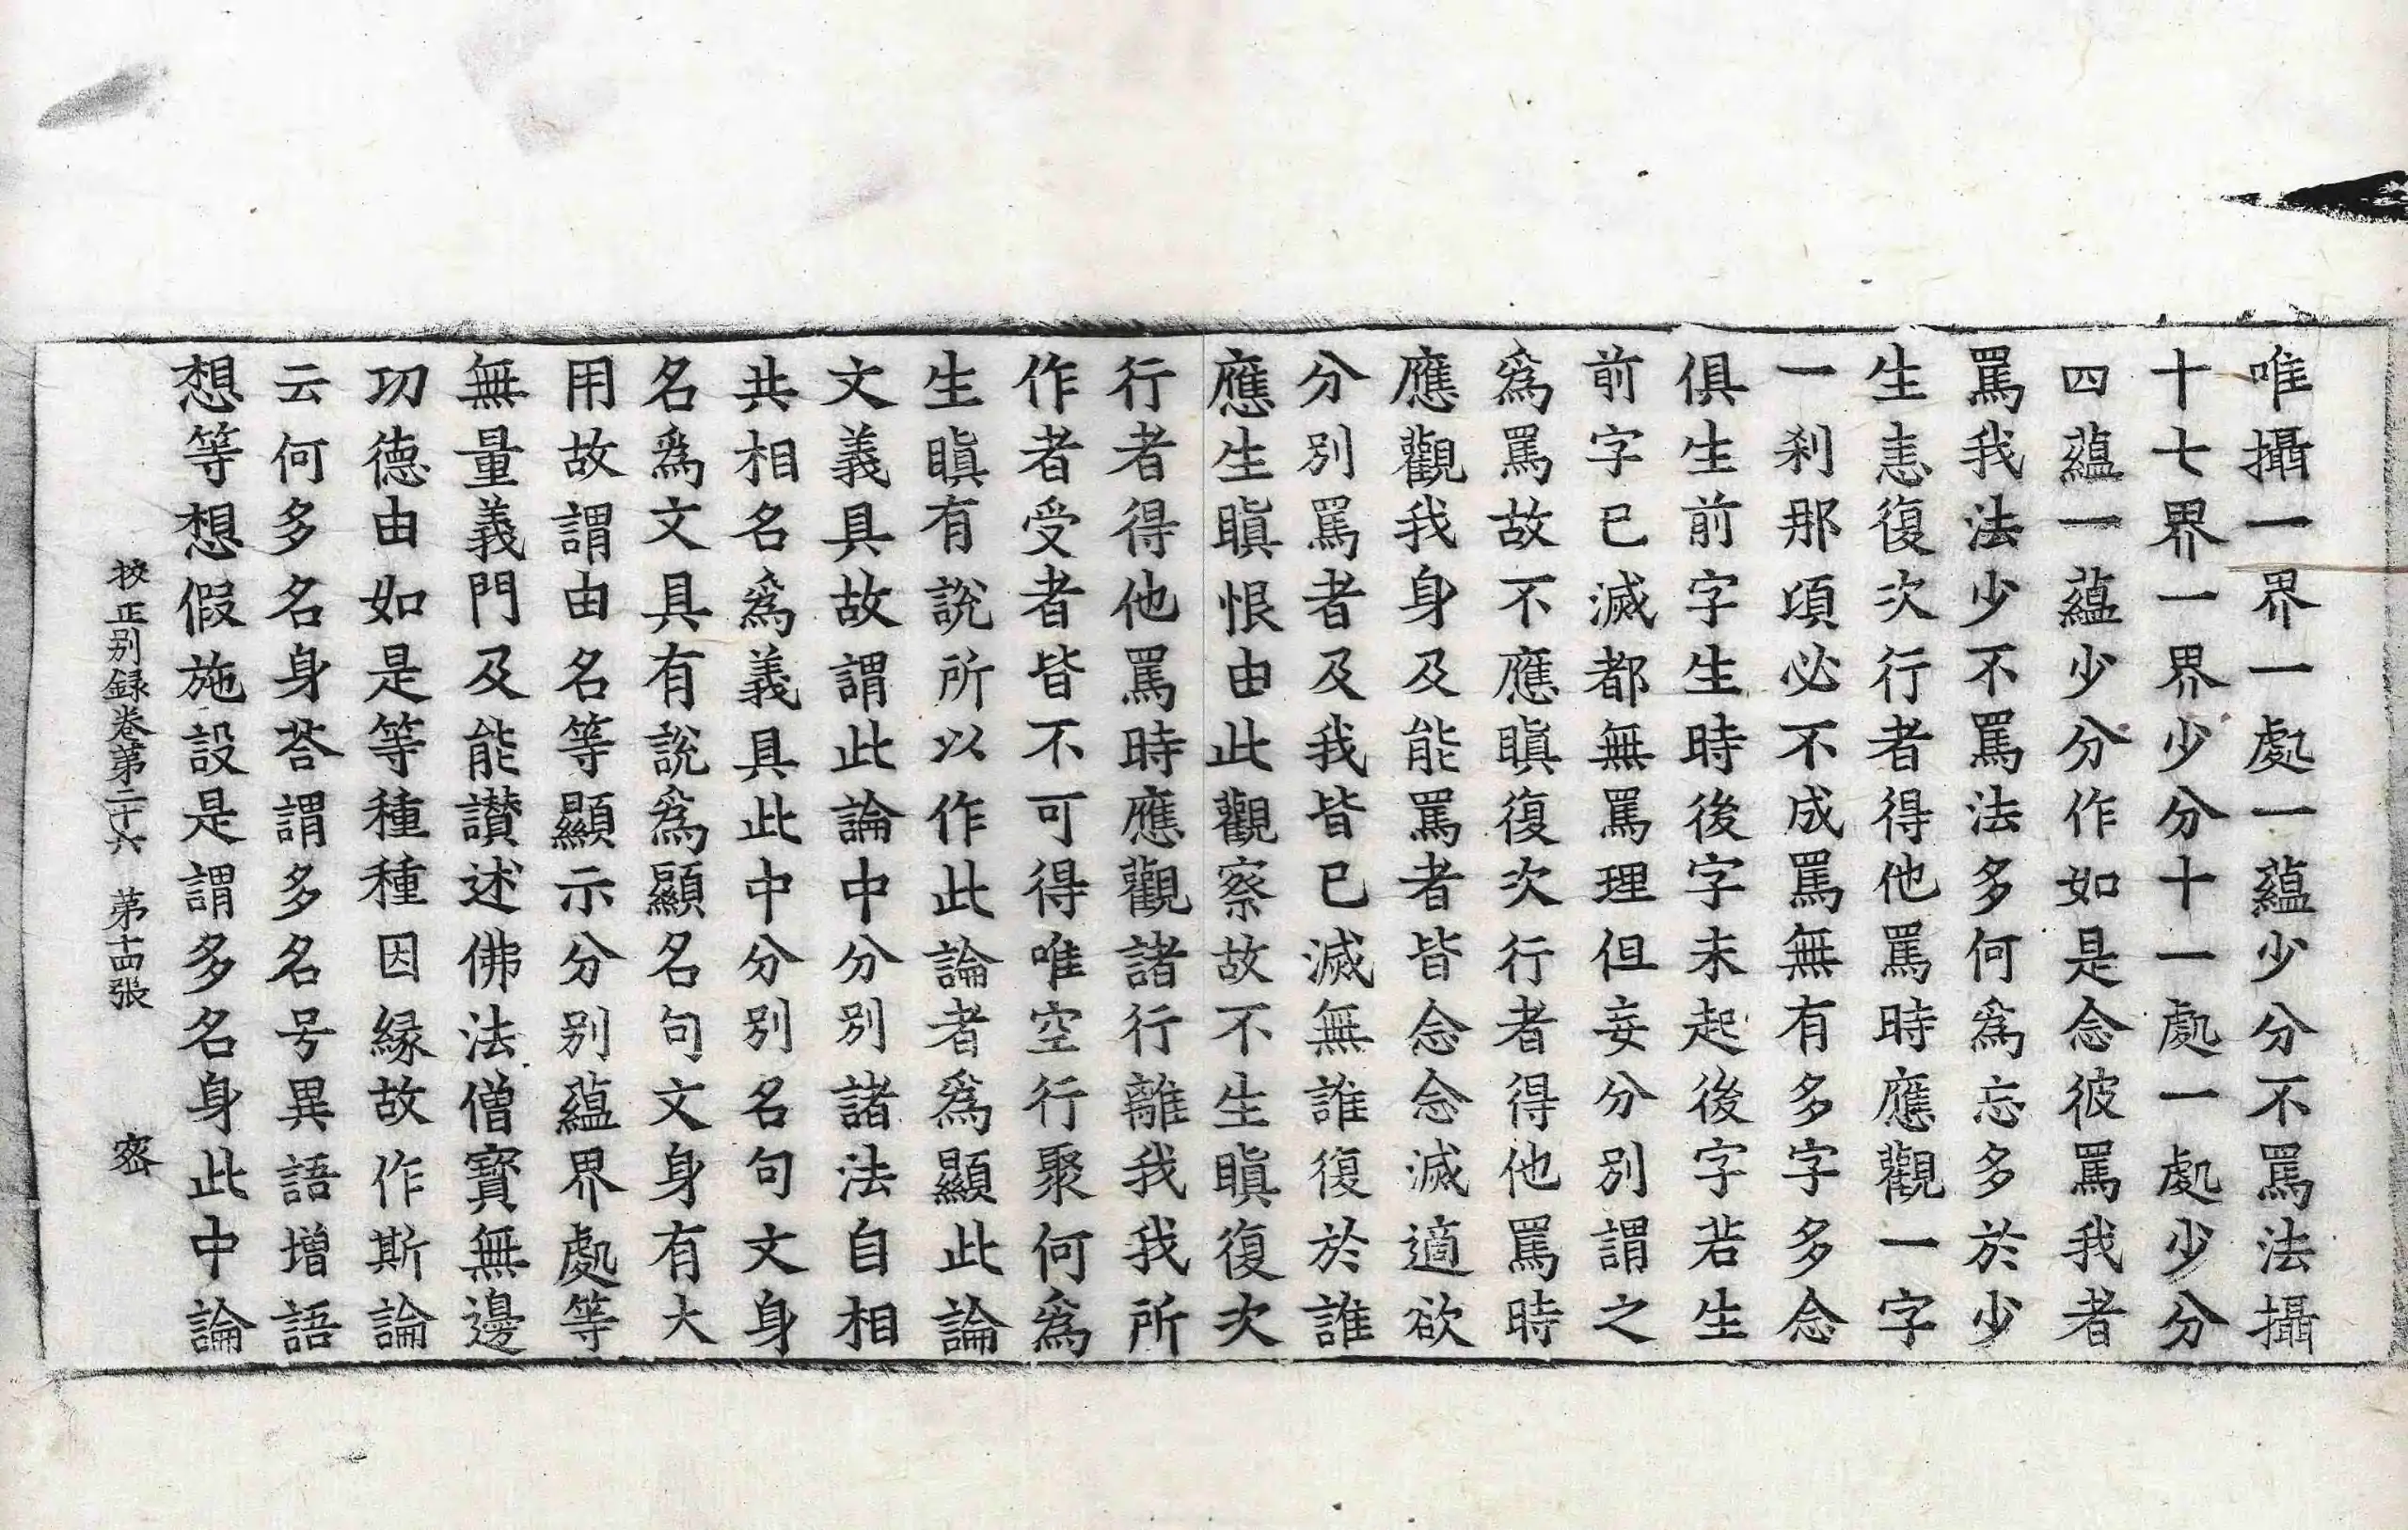 唯攝一界一處一蘊少分不罵法攝
十七界一界少分十一處一處少分
四蘊一蘊少分作如是念彼罵我者
罵我法少不罵法多何爲忘多於少
生恚復次行者得他罵時應觀一字
一刹那項必不成罵無有多字多念
俱生前字生時後字未起後字若生
前字已滅都無罵理但妄分別謂之
爲罵故不應瞋復次行者得他罵時
應觀我身及能罵者皆念念滅適欲
分別罵者及我皆已滅無誰復於誰
應生瞋恨由此觀察故不生瞋復次
行者得他罵時應觀諸行離我我所
作者受者皆不可得唯空行聚何爲
生瞋有說所以作此論者爲顯此論
文義具故謂此論中分別諸法自相
共相名爲義具此中分別名句文身
名爲文具有說爲顯名句文身有大
用故謂由名等顯示分别蘊界處等
無量義門及能讃述佛法僧寶無邊
功德由如是等種種因緣故作斯論
云何多名身荅謂多名号異語增語
想等想假施設是謂多名身此中論
挍正别録卷第二十六 第十四張 宻